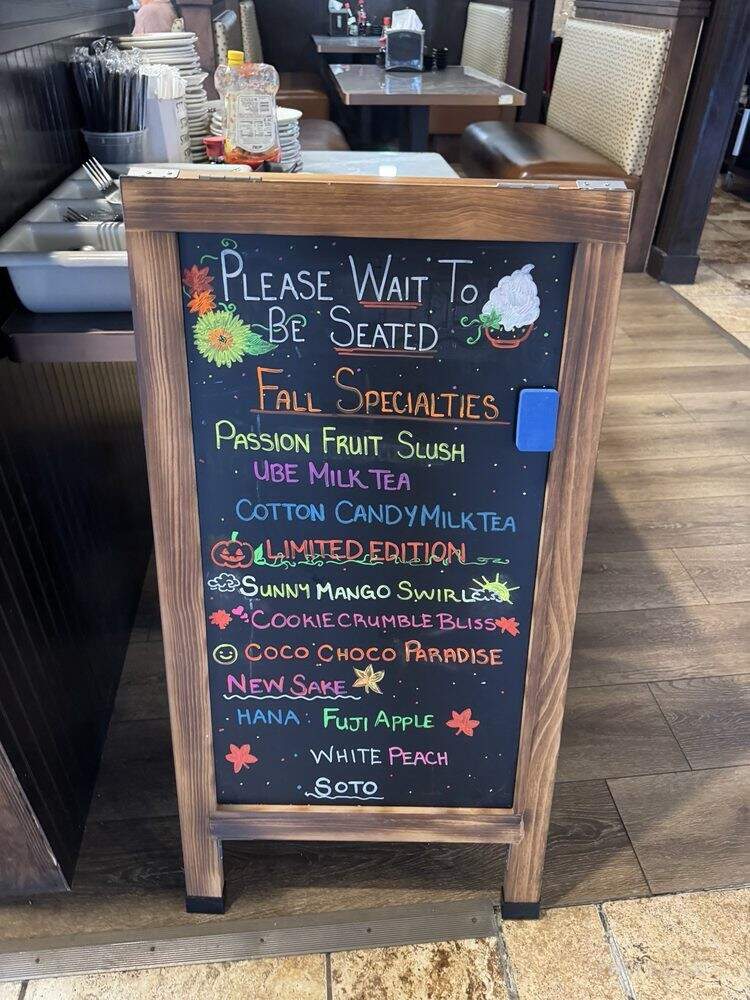 PLEASE WAIT TO
BE SEATED
FALL SPECIALTIES
PASSION FRUIT SLUSH
UBE MILK TEA
COTTON CANDY MILK TEA
LIMITED EDITION
SUNNY MANGO SWIRL
COOKIE CRUMBLE BLISS
COCO CHOCO PARADISE
NEW SAKE
HANA : FUJI APPLE
WHITE PEACH
SOTO